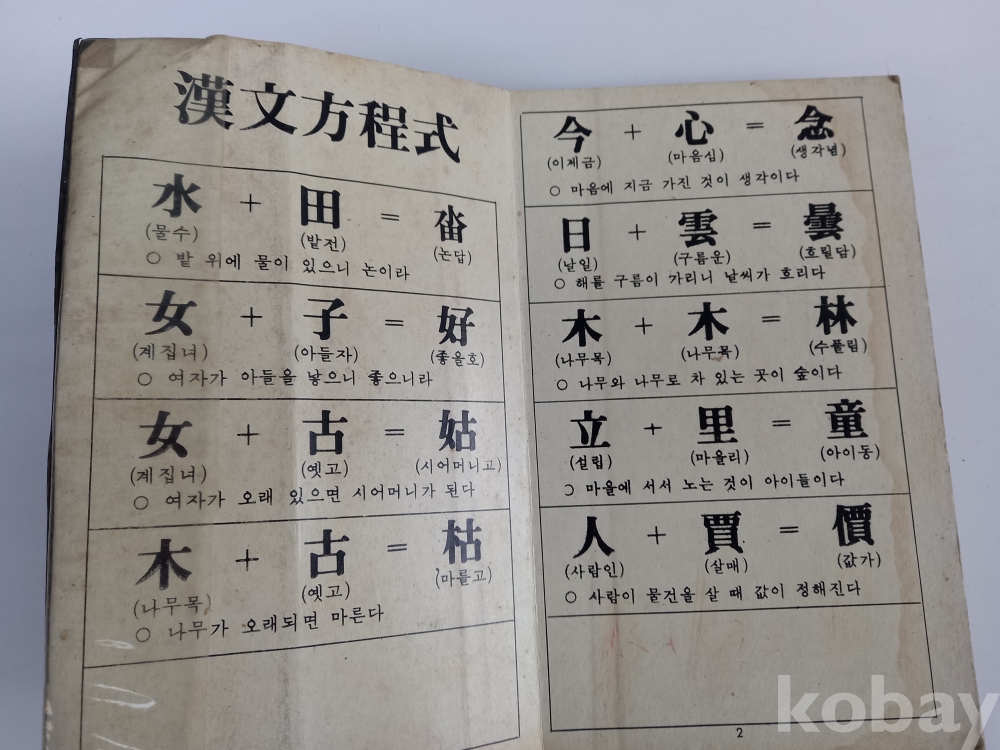 漢文方程式
水 + 田 = 畓
(물수) (밭전) (논답)
○ 밭 위에 물이 있으니 논이라
女 + 子 = 好
(계집녀) (아들자) (좋을호)
○ 여자가 아들을 낳으니 좋으니라
女 + 古 = 姑
(계집녀) (옛고) (시어머니고)
○ 여자가 오래 있으면 시어머니가 된다
木 + 古 = 枯
(나무목) (옛고) (마를고)
○ 나무가 오래되면 마른다
今 + 心 = 念
(이제금) (마음심) (생각념)
○ 마음에 지금 가진 것이 생각이다
日 + 雲 = 曇
(날일) (구름운) (흐릴담)
○ 해를 구름이 가리니 날씨가 흐리다
木 + 木 = 林
(나무목) (나무목) (수풀림)
○ 나무와 나무로 차 있는 곳이 숲이다
立 + 里 = 童
(설립) (마을리) (아이동)
○ 마을에 서서 노는 것이 아이들이다
人 + 買 = 價
(사람인) (살매) (값가)
○ 사람이 물건을 살 때 값이 정해진다
2
kobay